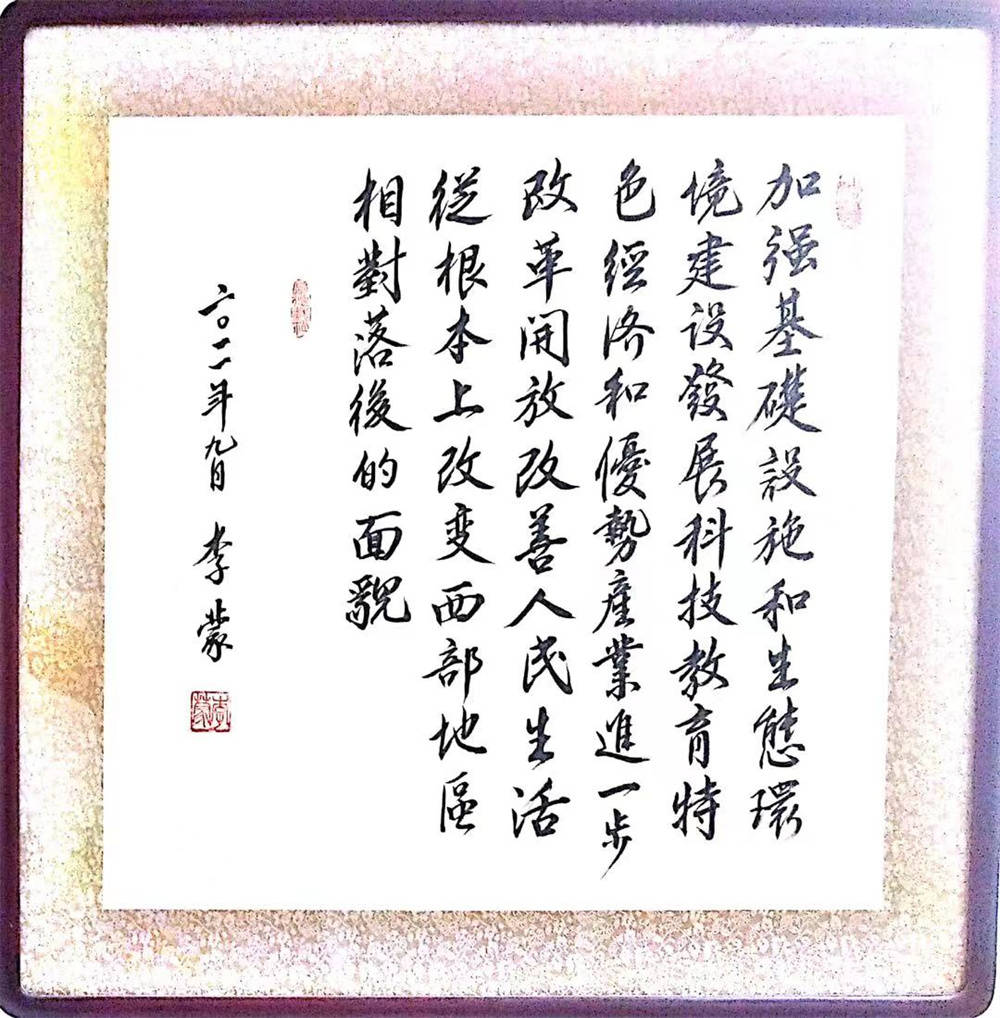 加强基礎設施和生態環
境建設發展科技教育特
色經济和優勢產業進一步
改革開放改善人民生活
從根本上改变西部地區
相對落後的面貌
二〇一一年九月 李蒙
李蒙